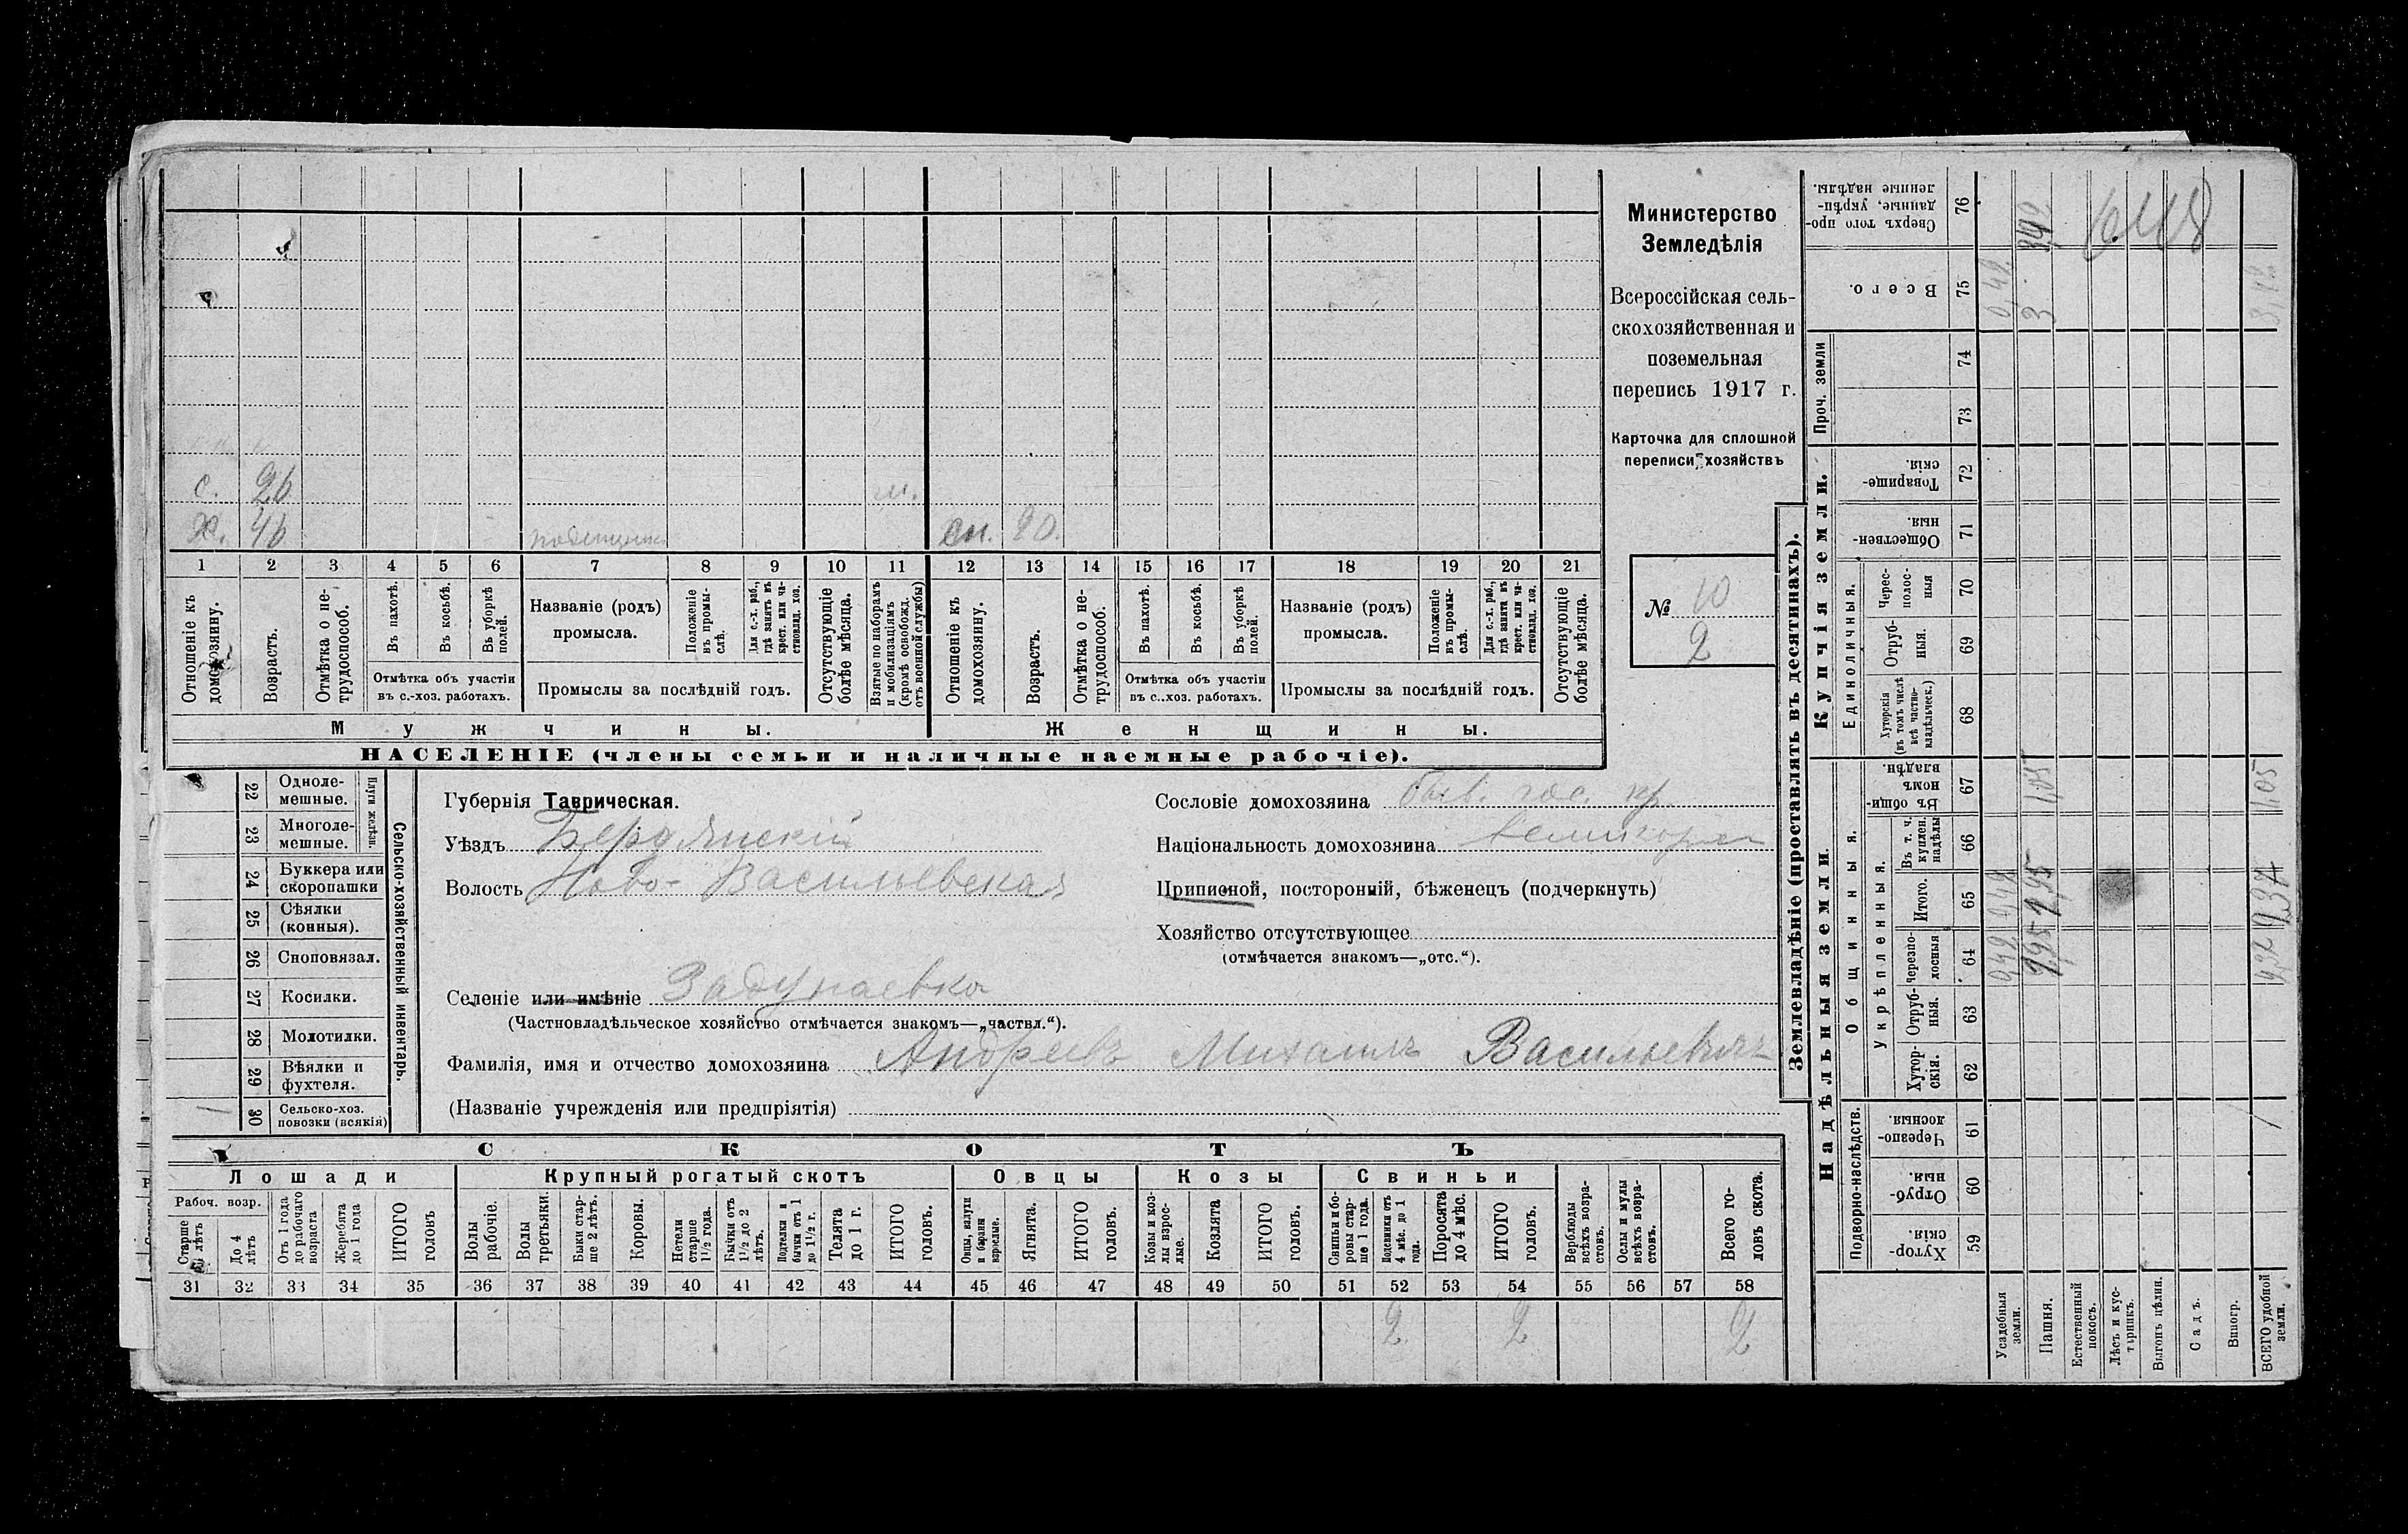 с. 26 м.
х. 46 сн. 20.
1 2 3 4 5 6 7 8 9 10 11 12 13 14 15 16 17 18 19 20 21
Отношеніе къ домохозяину.
Возрастъ.
Отмѣтка о не-трудоспособ.
Въ пахотѣ.
Въ косьбѣ.
Въ уборкѣ полей.
Отмѣтка объ участіи
въ с.-хоз. работахъ.
Названіе (родъ)
промысла.
Положеніе въ промы-слѣ.
Для с.-х. раб., гдѣ занятъ въ крест. или ча-стновлад. хоз.
Промыслы за послѣдній годъ.
Отсутствующіе болѣе мѣсяца.
Взятые по наборамъ и мобилизаціямъ (кромѣ освобожд. отъ военной службы)
Отношеніе къ домохозяину.
Возрастъ.
Отмѣтка о не-трудоспособ.
Въ пахотѣ.
Въ косьбѣ.
Въ уборкѣ полей.
Отмѣтка объ участіи
въ с..хоз. работахъ.
Названіе (родъ)
промысла.
Положеніе въ промы-слѣ.
Для с.-х. раб., гдѣ занята въ крест. или ча-стновлад. хоз.
Промыслы за послѣдній годъ.
Отсутствующіе болѣе мѣсяца.
Мужчины.
Женщины.
НАСЕЛЕНІЕ (члены семьи и наличные наемные рабочіе).
Министерство
Земледѣлія
Всероссійская сель-
скохозяйственная и
поземельная
перепись 1917 г.
Карточка для сплошной
переписи хозяйствъ
№ 10
2
22 Одноле-мешные.
23 Многоле-мешные.
Плуги желѣзн.
24 Буккера или скоропашки
25 Сѣялки (конныя).
26 Сноповязал.
27 Косилки.
28 Молотилки.
29 Вѣялки и фухтеля.
30 Сельско-хоз. повозки (всякія)
Сельско-хозяйственный инвентарь.
Губернія Таврическая.
Уѣздъ Бердянскій
Волость Ново-Васильевская
Селеніе или имѣніе Задунаевка
(Частновладѣльческое хозяйство отмѣчается знакомъ—„частвл.“).
Фамилія, имя и отчество домохозяина Андреевъ Михаилъ Васильевичъ
(Названіе учрежденія или предпріятія)
Сословіе домохозяина быв. гос. кр.
Національность домохозяина
Приписной, посторонній, бѣженецъ (подчеркнуть)
Хозяйство отсутствующее
(отмѣчается знакомъ—„отс.“).
СКОТЪ
Лошади
Крупный рогатый скотъ
Овцы
Козы
Свиньи
Рабоч. возр.
До 4 лѣтъ
Отъ 1 года до рабочаго возраста
Жеребята до 1 года
ИТОГО головъ
Волы рабочіе.
Волы третьяки.
Быки стар-ше 2 лѣтъ.
Коровы.
Нетели старше 1½ года.
Бычки отъ 1½ до 2 лѣтъ.
Подтелки и бычки отъ 1 до 1½ г.
Телята до 1 г.
ИТОГО головъ.
Овцы, валухи и бараны взрослые.
Ягнята.
ИТОГО головъ.
Козы и коз-лы взрос-лые.
Козлята
ИТОГО головъ.
Свиньи и бо-ровы стар-ше 1 года.
Подсвинки отъ 4 мѣс. до 1 года.
Поросята до 4 мѣс.
ИТОГО головъ.
Верблюды всѣхъ возра-стовъ.
Ослы и мулы всѣхъ возра-стовъ.
Всего го-ловъ скота.
31 32 33 34 35 36 37 38 39 40 41 42 43 44 45 46 47 48 49 50 51 52 53 54 55 56 57 58
2 2 2
Землевладѣніе (проставлять въ десятинахъ).
Купчія земли.
Надѣльныя земли
Сверхъ того про-данные, укрѣп-ленные надѣлы. 76
Всего. 75
Проч. земли 74 73
Товарище-скія. 72
Обществен-ныя. 71
Единоличныя.
Черес-полос-ныя 70
Отруб-ныя. 69
Хуторскія (въ томъ числѣ всѣ частно-владѣльческ.) 68
Общинныя.
Въ общи-номъ владѣн. 67
Укрѣпленныя.
Въ т. ч. куплен. надѣлы 66
Итого. 65
Черезпо-лосныя 64
Отруб-ныя. 63
Хутор-скія. 62
Подворно-наслѣдств.
Черезпо-лосныя 61
Отруб-ныя. 60
Хутор-скія. 59
Усадебныя земли.
Пашня.
Естественный покосъ.
Лѣсъ и кус-тарникъ.
Выгонъ цѣлин.
Садъ.
Виногр.
ВСЕГО удобной земли.